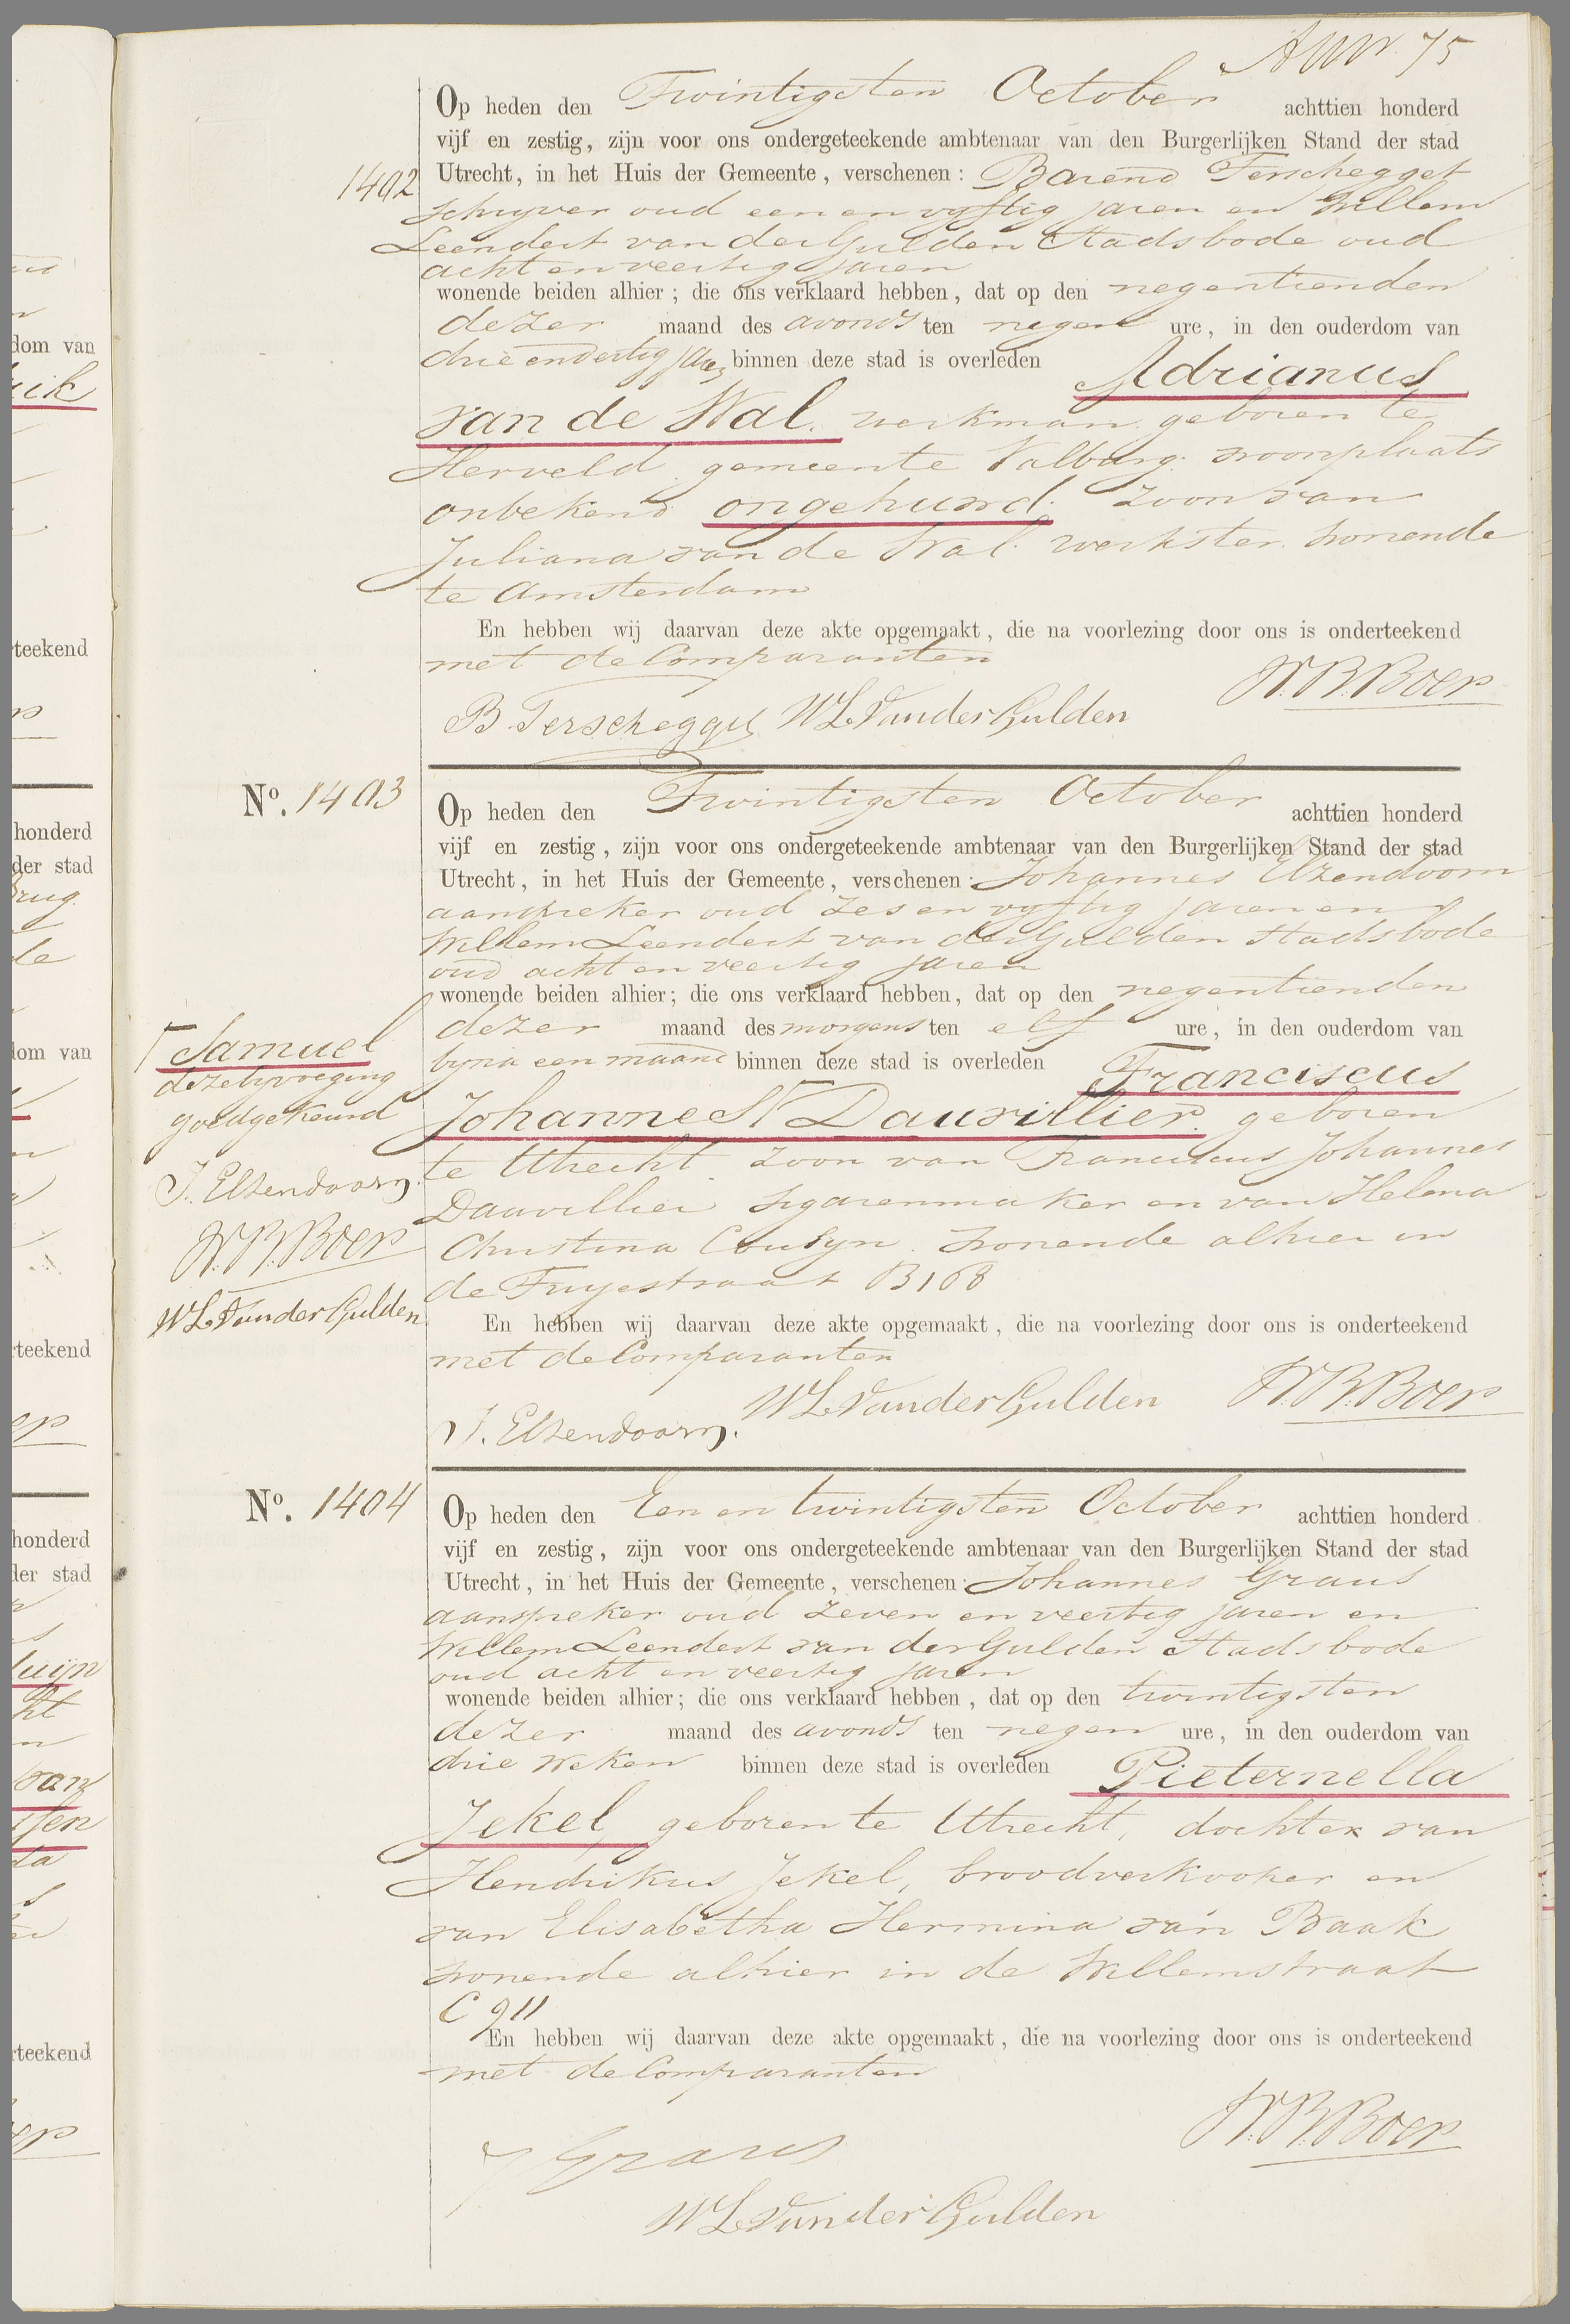 75
Op heden den Twintigsten October achttien honderd
vijf en zestig, zijn voor ons ondergeteekende ambtenaar van den Burgerlijken Stand der stad
1402 Utrecht, in het Huis der Gemeente, verschenen: Barend Terschegget
schryver oud een en vyftig jaren en Willem
Leendert van der Gulden Stadsbode oud
acht en veertig jaren
wonende beiden alhier; die ons verklaard hebben, dat op den negentienden
dezer maand des avonds ten negen ure, in den ouderdom van
drie en dertig jaren binnen deze stad is overleden Adrianus
van de Wal. werkman geboren te
Herveld gemeente Valburg. woonplaats
onbekend ongehuwd. zoon van
Juliana van de Wal. werkster. wonende
te Amsterdam
En hebben wij daarvan deze akte opgemaakt, die na voorlezing door ons is onderteekend
met de Comparanten
B. Terschegget WL VanderGulden W.B. Boer
No. 1403
Op heden den Twintigsten October achttien honderd
vijf en zestig, zijn voor ons ondergeteekende ambtenaar van den Burgerlijken Stand der stad
Utrecht, in het Huis der Gemeente, verschenen: Johannes Elzendoorn
aanspreker oud zes en vyftig jaren en
Willem Leendert van der Gulden Stadsbode
oud acht en veertig jaren
wonende beiden alhier; die ons verklaard hebben, dat op den negentienden
dezer maand des morgens ten elf ure, in den ouderdom van
byna een maand binnen deze stad is overleden Franciscus
Johannes Γ Dauvillier. geboren
te Utrecht zoon van Franciscus Johannes
Dauvillier sigarenmaker en van Helena
Christina Cousyn. wonende alhier in
de Fuyestraat B168
En hebben wij daarvan deze akte opgemaakt, die na voorlezing door ons is onderteekend
met de Comparanten
J. Elzendoorn. WL VanderGulden W.B. Boer
Γ Samuel
deze byvoeging
goedgekeurd
J. Elzendoorn.
W.B. Boer
WL VanderGulden
No. 1404
Op heden den Een en twintigsten October achttien honderd
vijf en zestig, zijn voor ons ondergeteekende ambtenaar van den Burgerlijken Stand der stad
Utrecht, in het Huis der Gemeente, verschenen: Johannes Graus
aanspreker oud zeven en veertig jaren en
Willem Leendert van der Gulden Stadsbode
oud acht en veertig jaren
wonende beiden alhier; die ons verklaard hebben, dat op den twintigsten
dezer maand des avonds ten negen ure, in den ouderdom van
drie weken binnen deze stad is overleden Pieternella
Jekel geboren te Utrecht, dochter van
Hendrikus Jekel, broodverkooper en
van Elisabetha Hermina van Baak
wonende alhier in de Willemstraat
C 911
En hebben wij daarvan deze akte opgemaakt, die na voorlezing door ons is onderteekend
met de Comparanten
J Graus W.B. Boer
WL VanderGulden